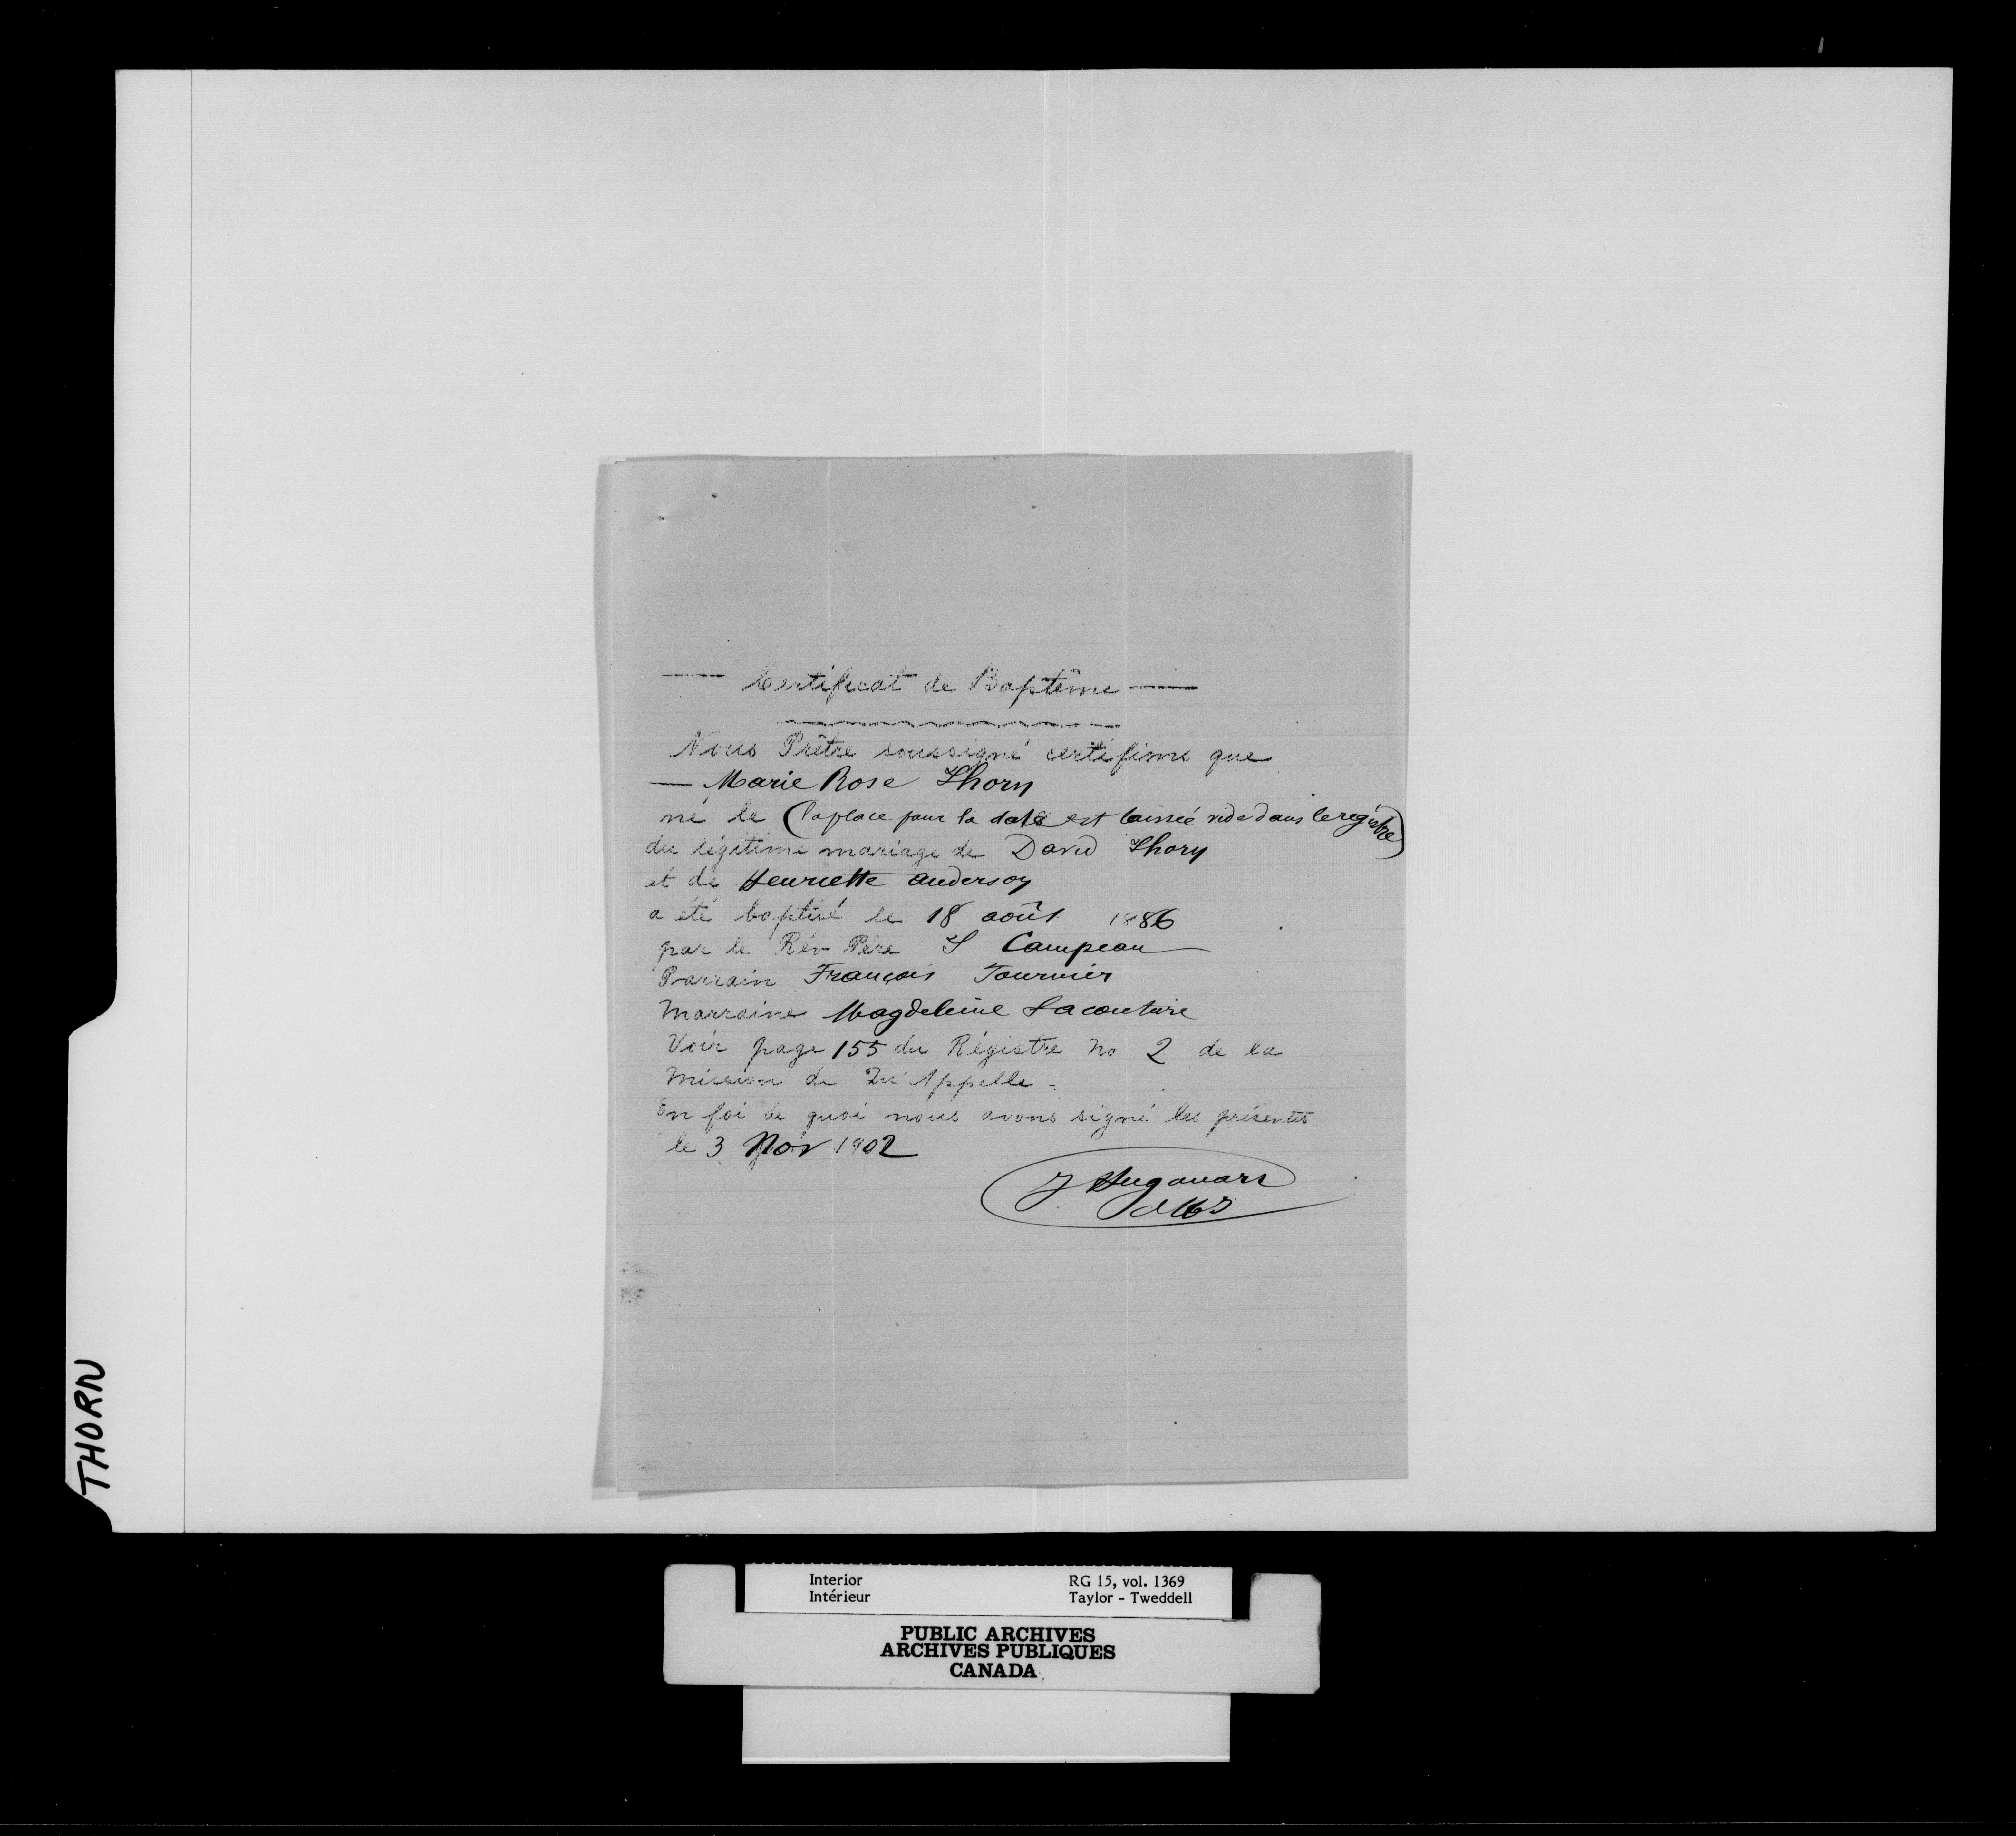 Certificat de Baptême
Nous Prêtre soussigné certifions que
Marie Rose Thorn
né le (la place pour la date est laissée vide dans le régistre)
du légitime mariage de David Thorn
et de Henriette Anderson
a été baptisé le 18 août 1886
par le Rév Père S Campeau
Parrain François Tournier
Marraine Magdeleine Lacouture
Voir page 155 du Régistre No 2 de la
Mission de Qu'Appelle.
En foi de quoi nous avons signé les présentes
le 3 Nov 1902
J Hugonard
OMI
THORN
Interior RG 15, vol. 1369
Intérieur Taylor - Tweddell
PUBLIC ARCHIVES
ARCHIVES PUBLIQUES
CANADA